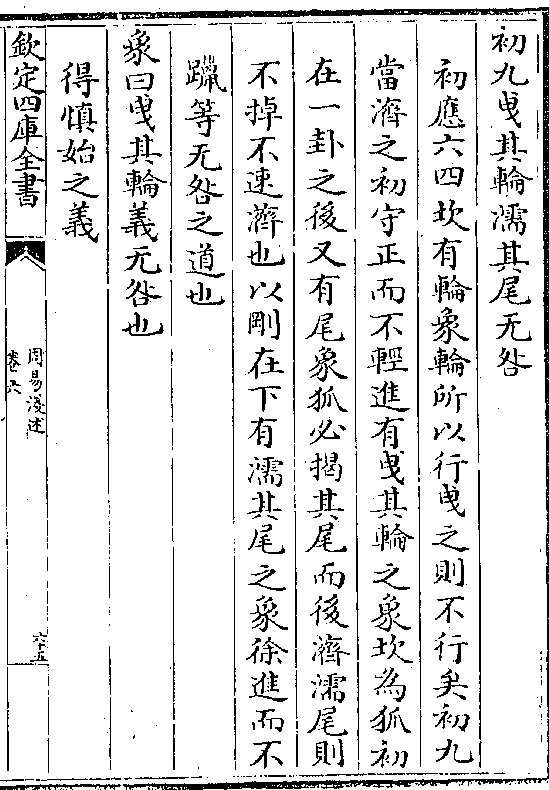 初九曵其輪濡其尾无咎
初應六四坎有輪象輪所以行曵之則不行矣初九
當濟之初守正而不輕進有曵其輪之象坎為狐初
在一卦之後又有尾象狐必揭其尾而後濟濡尾則
不掉不速濟也以剛在下有濡其尾之象徐進而不
躐等无咎之道也
象曰曵其輪義无咎也
得慎始之義
欽定四庫全書
周易淺述
卷六
六十五